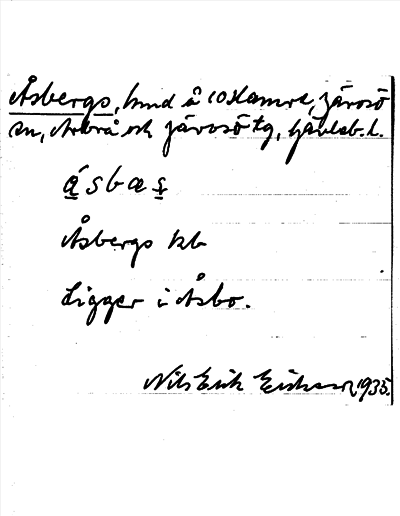 Åsbergs, hmd å 10 Hamre, Järvsö
sn, Arbrå och Järvsö tg, Gävleb. l.
á̳sbas̳
Åsbergs kb
Ligger i Åsbo.
Nils Erik Eriksson 1935.